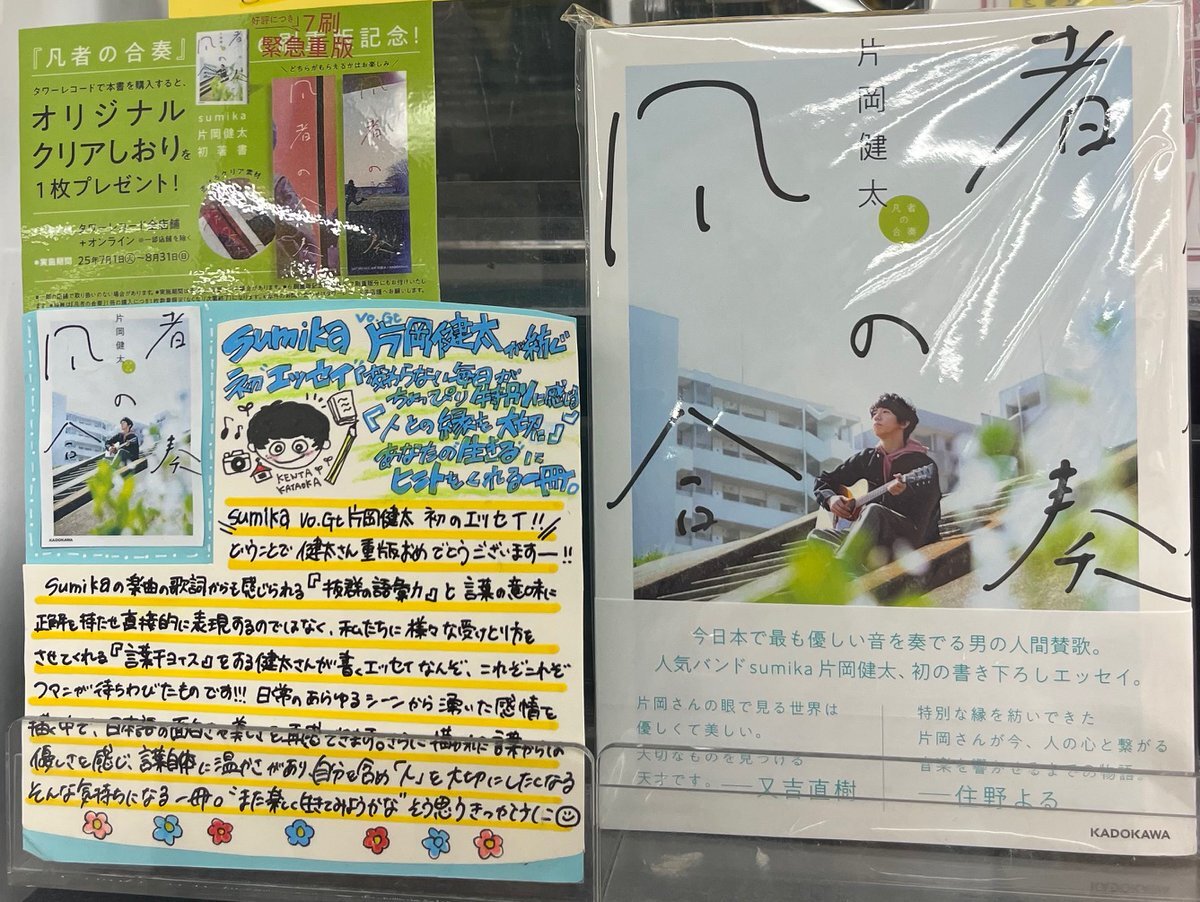 『凡者の合奏』
好評につき 7刷
緊急重版
記念!
タワーレコードで本書を購入すると、
オリジナル
クリアしおりを
1枚プレゼント!
どちらがもらえるかはお楽しみ
sumika
片岡健太
初著書
凡者の合奏
タワーレコード全店舗
+オンライン ※一部店舗を除く
●実施期間 25年7月1日㊋〜8月31日㊐
片岡健太
凡者の合奏
KADOKAWA
sumika Vo.Gt 片岡健太が紡ぐ
初エッセイ! 変わらない毎日が
ちょっぴり特別に感じ
『人との縁を大切に』
あなたの生きるに
ヒントをくれる一冊。
KENTA
KATAOKA
sumika Vo.Gt 片岡健太 初のエッセイ!!
ということで 健太さん重版おめでとうございますー!!
sumikaの楽曲の歌詞からも感じられる『抜群の語彙力』と言葉の意味に
正解を持たせ直接的に表現するのではなく、私たちに様々な受けとり方を
させてくれる『言葉チョイス』をする健太さんが書くエッセイなんぞ、これぞこれぞ
ファンが待ちわびたものです!!! 日常のあらゆるシーンから湧いた感情を
描く中で、日本語の面白さや美しさを再考できます。さらに描かれた言葉からの
優しさを感じ、言葉自体に温かさがあり、自分を含め「人」を大切にしたくなる
そんな気持ちになる一冊。"また楽しく生きてみようかな"そう思うきっかけに
片岡健太
凡者の合奏
凡者の合奏
今日本で最も優しい音を奏でる男の人間賛歌。
人気バンドsumika片岡健太、初の書き下ろしエッセイ。
片岡さんの眼で見る世界は
優しくて美しい。
大切なものを見つける
天才です。——又吉直樹
特別な縁を紡いできた
片岡さんが今、人の心と繋がる
音楽を響かせるまでの物語。
——住野よる
KADOKAWA